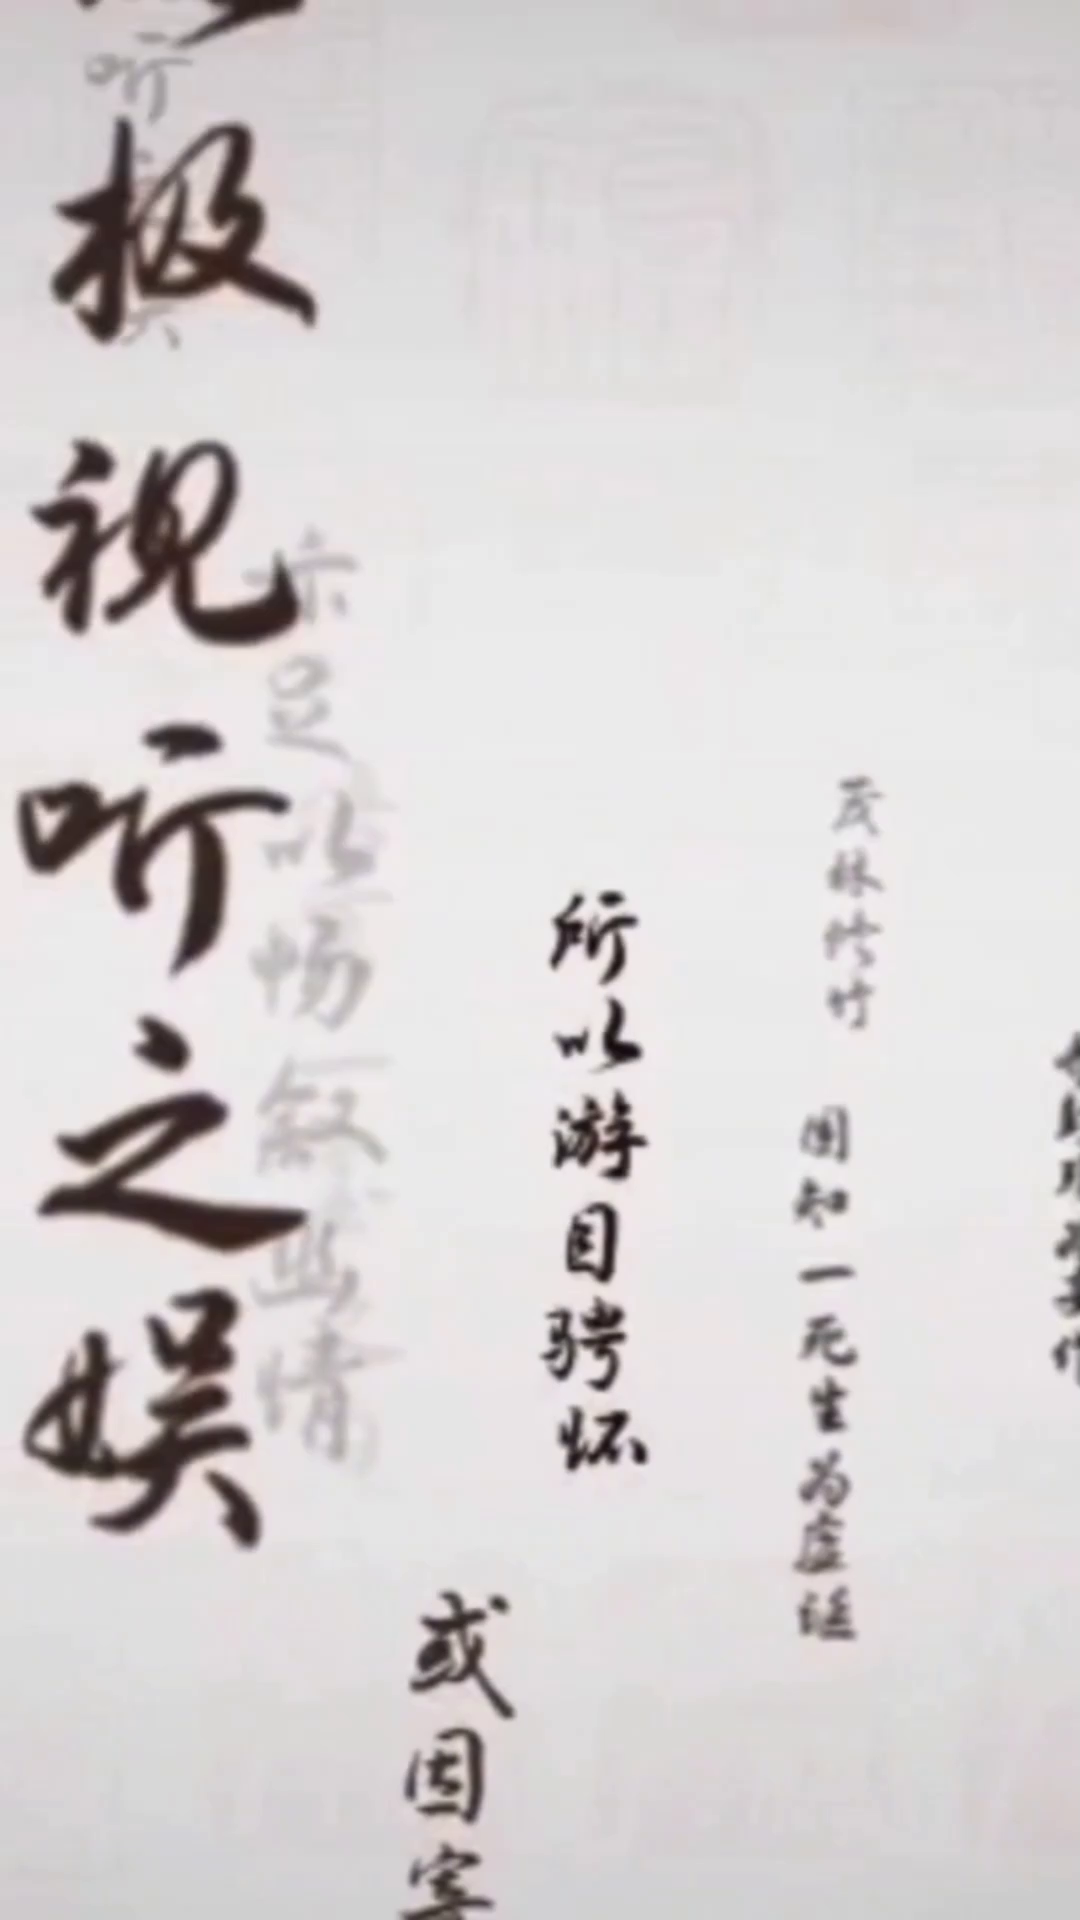 茂林修竹
固知一死生为虚诞
所以游目骋怀
或因寄
亦足以畅叙幽情
极视听之娱
听